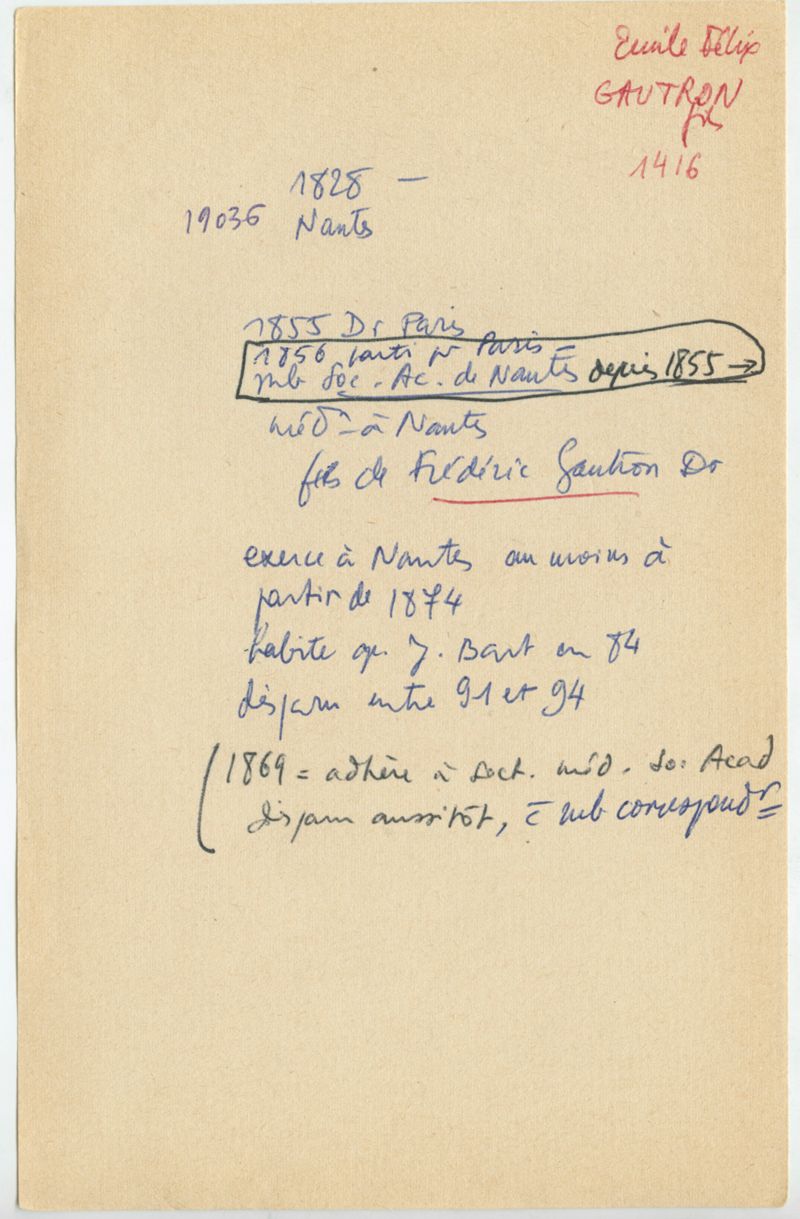 Emile Félix
GAUTRON
fils
1416
1828 —
19036 Nantes
1855 Dr Paris
1856 parti pr Paris =
mb Soc. Ac. de Nantes depuis 1855 →
méd à Nantes
fils de Frédéric Gautron Dr
exerce à Nantes au moins à
partir de 1874
habite av. J. Bart en 84
disparu entre 91 et 94
(1869 = adhère à Sect. méd. Soc Acad
disparu aussitôt, c mb correspondt =